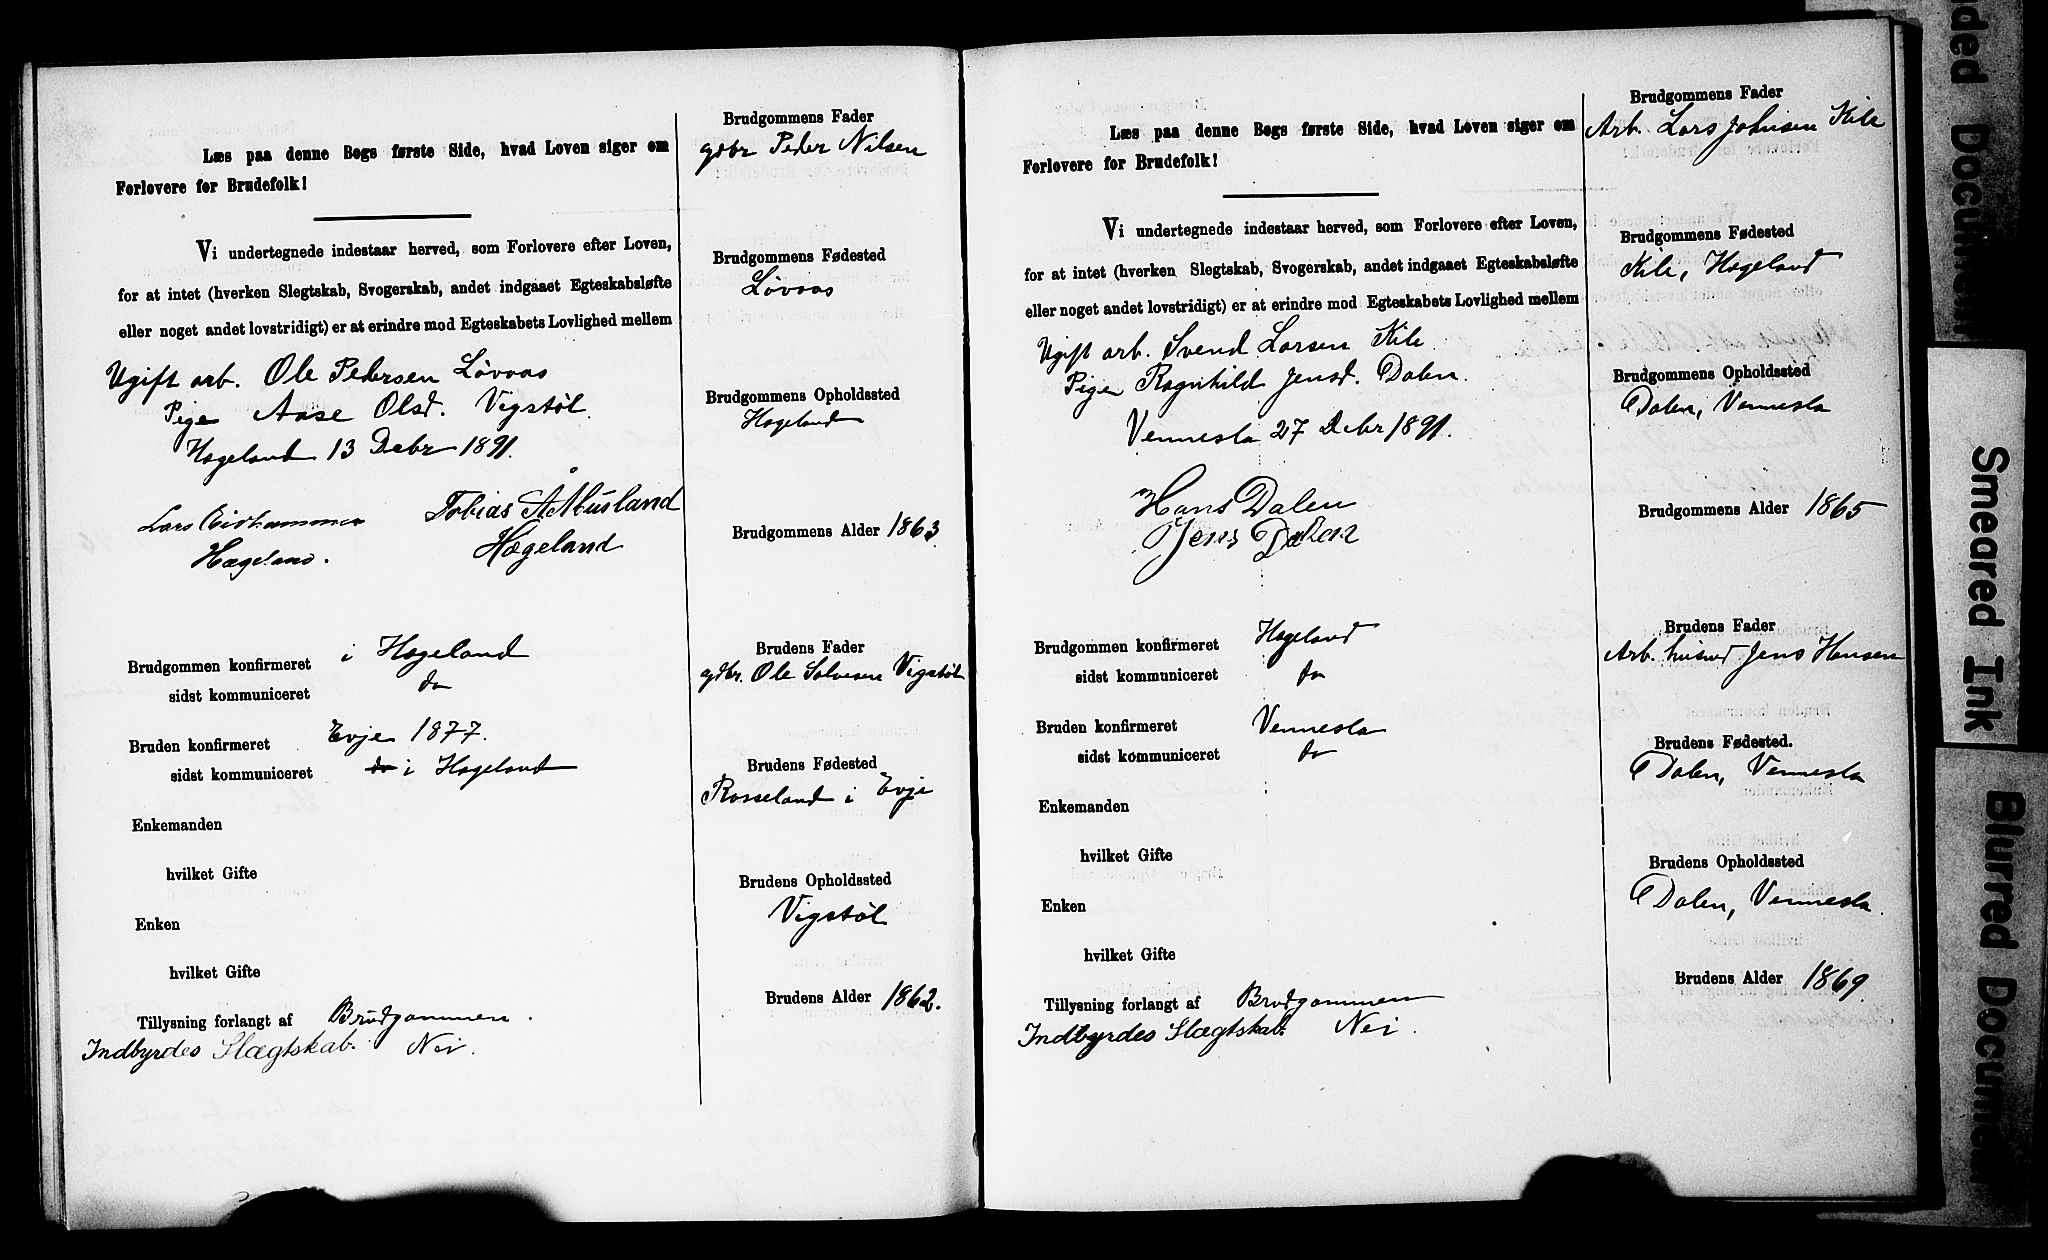 Læs paa denne Bogs første Side, hvad Loven siger om
Forlovere for Brudefolk!
Vi undertegnede indestaar herved, som Forlovere efter Loven,
for at intet (hverken Slegtskab, Svogerskab, andet indgaaet Egteskabsløfte
eller noget andet lovstridigt) er at erindre mod Egteskabets Lovlighed mellem
Ugift arb. Ole Pedersen Løvaas
Pige Aase Olsd. Vigstøl
Hægeland 13 Debr 1891.
Lars Eidhammer
Hægeland.
Tobias Å Musland
Hægeland
Brudgommen konfirmeret i Hægeland
sidst kommuniceret do
Bruden konfirmeret Evje 1877.
sidst kommuniceret do i Hægeland
Enkemanden
hvilket Gifte
Enken
hvilket Gifte
Tillysning forlangt af Brudgommen.
Indbyrdes Slægtskab. Nei.
Brudgommens Fader
gdbr Peder Nilsen
Brudgommens Fødested
Løvaas
Brudgommens Opholdssted
Hægeland
Brudgommens Alder 1863
Brudens Fader
gdbr. Ole Salvesen Vigstøl
Brudens Fødested
Rosseland i Evje
Brudens Opholdssted
Vigstøl
Brudens Alder 1862.
Læs paa denne Bogs første Side, hvad Loven siger om
Forlovere for Brudefolk!
Vi undertegnede indestaar herved, som Forlovere efter Loven,
for at intet (hverken Slegtskab, Svogerskab, andet indgaaet Egteskabsløfte
eller noget andet lovstridigt) er at erindre mod Egteskabets Lovlighed mellem
Ugift arb. Svend Larsen Kile
Pige Ragnhild Jensd. Dalen.
Vennesla 27 Debr 1891.
Hans Dalen
Jens Dalen
Brudgommen konfirmeret Hægeland
sidst kommuniceret do
Bruden konfirmeret Vennesla
sidst kommuniceret do
Enkemanden
hvilket Gifte
Enken
hvilket Gifte
Tillysning forlangt af Brudgommen
Indbyrdes Slægtskab. Nei.
Brudgommens Fader
Arb. Lars Johnsen Kile
Brudgommens Fødested
Kile, Hægeland
Brudgommens Opholdssted
Dalen, Vennesla
Brudgommens Alder 1865
Brudens Fader
Arb. husmd Jens Hansen
Brudens Fødested.
Dalen, Vennesla
Brudens Opholdssted
Dalen, Vennesla.
Brudens Alder 1869
ded Documen
Smeared Ink
Blurred Documen